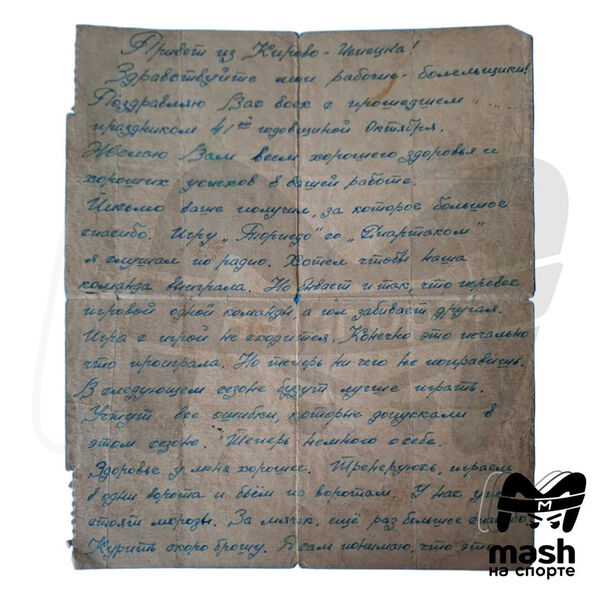 Привет из Кирово-Чепецка!
Здравствуйте мои рабочие-болельщики!
Поздравляю Вас всех с прошедшем
праздником 41ой годовщиной Октября.
Желаю Вам всем хорошего здоровья и
хороших успехов в вашей работе.
Письмо ваше получил, за которое большое
спасибо. Игру „Торпедо" со „Спартаком"
я слушал по радио. Хотел чтобы наша
команда выиграла. Но бывает и так, что перевес
игровой одной команды а гол забивает другая.
Игра с игрой не сходится. Конечно это печально
что проиграла. Но теперь ни чего не поправишь.
В следующем сезоне будут лучше играть.
Учтут все ошибки, которые допускали в
этом сезоне. Теперь немного о себе.
Здоровье у меня хорошее. Тренеруюсь, играем
в одни ворота и бьём по воротам. У нас уже
стоят морозы. За мячик, ещё раз большое спасибо.
Курить скоро брошу. Я сам понимаю, что это
mash
на спорте